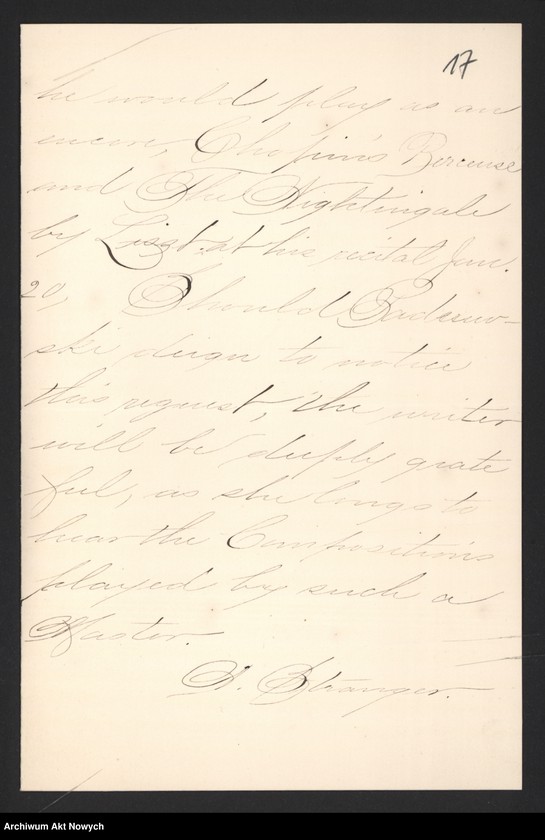 17
he would play as an
encore, Chopin's Berceuse
and The Nightingale
by Liszt, at his recital Jan.
20, Should Paderew-
ski deign to notice
this request, the writer
will be deeply grate
ful, as she longs to
hear the Compositions
played by such a
Master.
A. Stranger.
Archiwum Akt Nowych